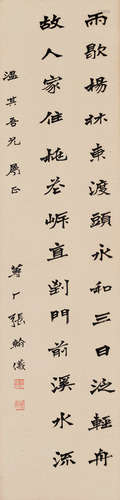 雨歇楊林東渡頭永和三日泛輕舟
故人家住桃花岍直到門前溪水流
溫其吾兄屬正
蓴厂張翰儀